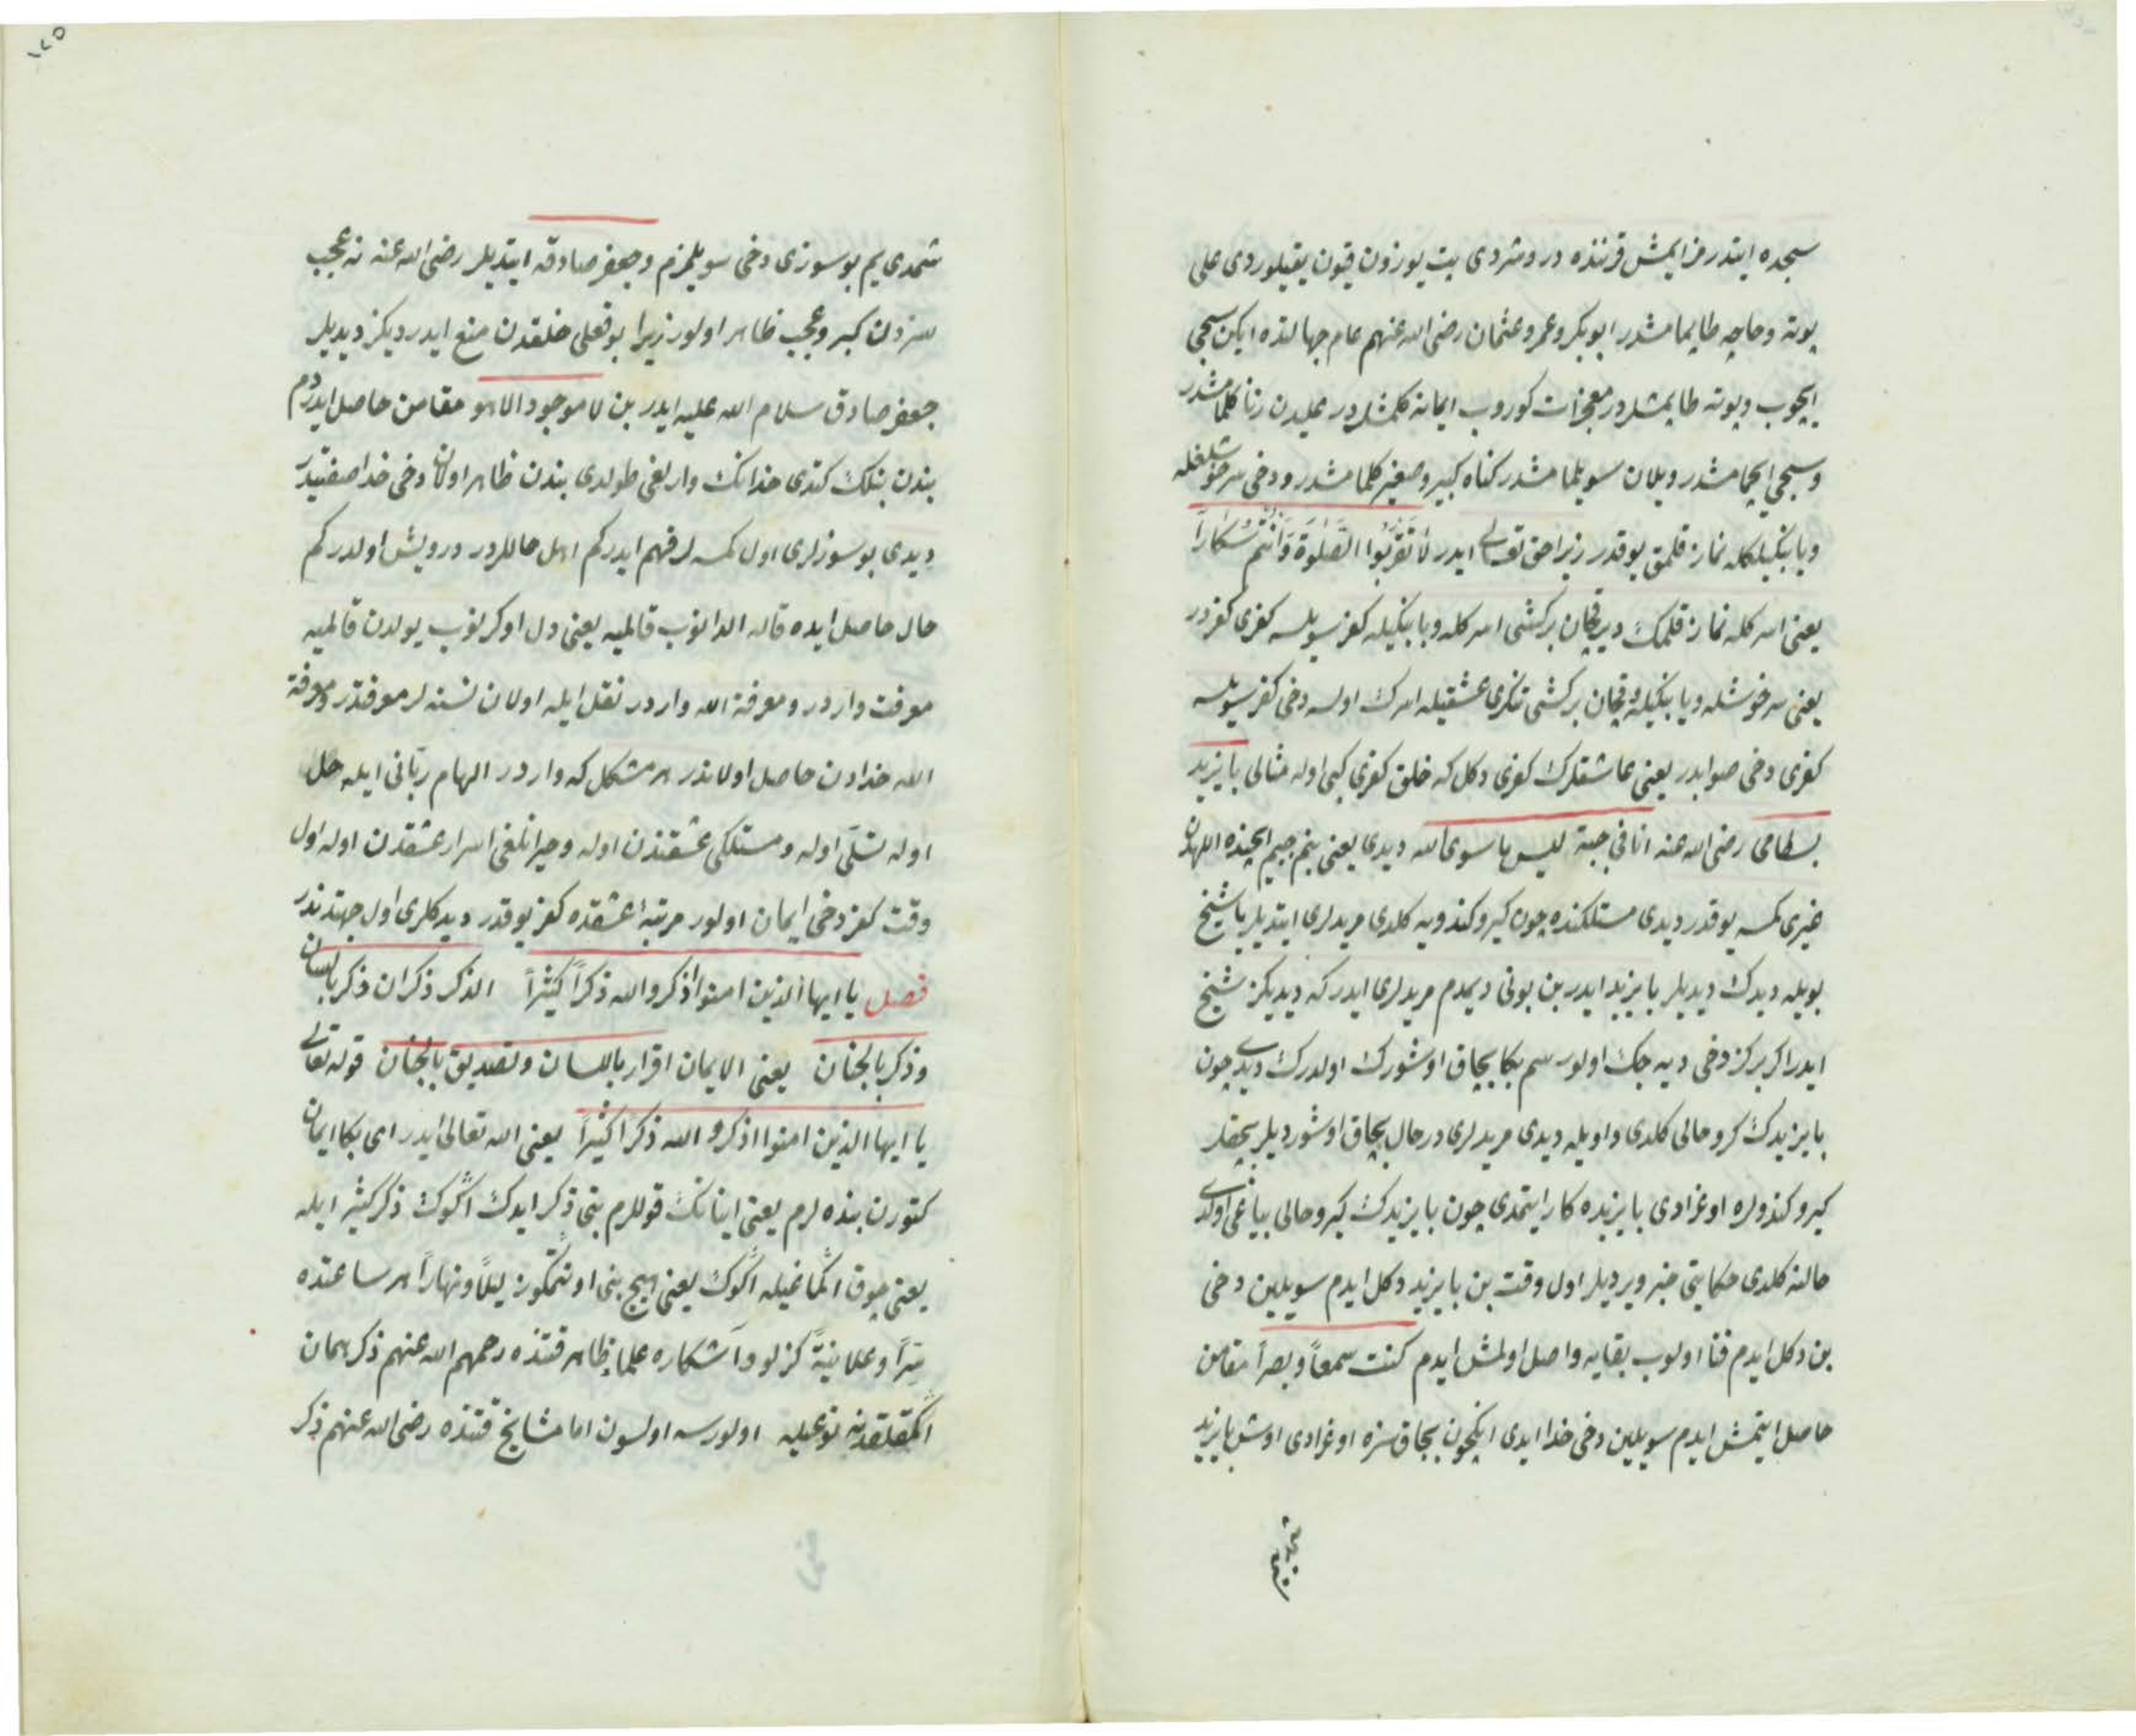 سجده ایتدرمز ایمش قرننده دروردی بت یوزون قیون یقیلوردی علی
پوته و حاچه طاپمامشدر ابوبکر و عمر و عثمان رضی الله عنهم عام جهالتده ایکن سجی
ایچوب و پوته طاپمشلردر معجزات کوروب ایمانه کلمشلردر علیدن زنا کلمامشدر
و سجی ایچمامشدر و یلان سویلمامشدر کناه کبیر و صغیر کلمامشدر و دخی سرخوشلغله
و یا بنکیلکله نماز قلمق یوقدر زیرا حق تعالی ایدر لا تقربوا الصلوة و انتم سکارا
یعنی اسرکله نماز قلمک دیر قچان برکشی اسرکله و یا بنکیله کفر سویلسه کفری کفردر
یعنی سرخوشله و یا بنکیله و قچان برکشی تنکری عشقیله اسرک اولسه دخی کفر سویلسه
کفری دخی صوابدر یعنی عاشقلرک کفری دکل که خلق کفری کبی اوله مثالی بایزید
بسطامی رضی الله عنه انا فی جبة لیس ما سوی الله دیدی یعنی بنم جبم ایچنده اللهدن
غیری کمسه یوقدر دیدی مستلکنده چون کیرو کندویه کلدی مریدلری ایتدیلر یا شیخ
بویله دیدک دیدیلر بایزید ایدر بن بونی دیمدم مریدلری ایدر که دیدیکز شیخ
ایدر اکر برکز دخی دیه جک اولورسم بکا بچاق اوشورک اولدرک دیدی چون
بایزیدک کرو حالی کلدی و اویله دیدی مریدلری درحال بچاق اوشوردیلر بچقلر
کیرو کندولره اوغرادی بایزیده کار ایتمدی چون بایزیدک کیرو حالی بیاغی اولدی
حالنه کلدی حکایتی خبر ویردیلر اول وقت بن بایزید دکل ایدم سویلین دخی
بن دکل ایدم فنا اولوب بقایه واصل اولمش ایدم کنت سمعا و بصرا مقامن
حاصل ایتمش ایدم سویلین دخی خدا ایدی انکچون بچاق سزه اوغرادی اوش بایزید
شمدی یم بو سوزی دخی سویلمزم و جعفر صادقه ایتدیلر رضی الله عنه نه عجب
سزدن کبر و عجب ظاهر اولور زیرا بو فعلی خلقدن منع ایدردیکز دیدیلر
جعفر صادق سلام الله علیه ایدر بن لا موجود الا هو مقامن حاصل ایدردم
بندن بنلک کتدی خدانک وارلغی طولدی بندن ظاهر اولان دخی خدا صفتیدر
دیدی بو سوزلری اول کمسه لر فهم ایدرکم اهل حاللردر درویش اولدرکم
حال حاصل ایده قاله الدانوب قالمیه یعنی دل اوکرنوب یولدن قالمیه
معرفت واردر و معرفة الله واردر نقل ایله اولان نسنه لر معرفتدر و معرفة
الله خدادن حاصل اولاندر هر مشکل که واردر الهام ربانی ایله حل
اوله تسلی اوله و مستلکی عشقندن اوله و حیرانلغی اسرار عشقدن اوله اول
وقت کفر دخی ایمان اولور مرتبه عشقده کفر یوقدر دیدکلری اول جهتدندر
فصل یا ایها الذین امنوا اذکروا الله ذکراً کثیراً الذکر ذکران ذکر باللسان
و ذکر بالجنان یعنی الایمان اقرار باللسان و تصدیق بالجنان قوله تعالی
یا ایها الذین امنوا اذکروا الله ذکراً کثیراً یعنی الله تعالی ایدر ای بکا ایمان
کتورن بنده لرم یعنی اینانک قوللرم بنی ذکر ایدک اکوک ذکر کثیر ایله
یعنی چوق اکماغیله اکوک یعنی هیچ بنی اونتمکوز لیلاً و نهاراً هر ساعتده
سراً و علانیةً کزلو و آشکاره علماء ظاهر قتنده رحمهم الله عنهم ذکر همان
اکمقلقدر نه نوعیله اولورسه اولسون اما مشایخ قتنده رضی الله عنهم ذکر
۱۲۵